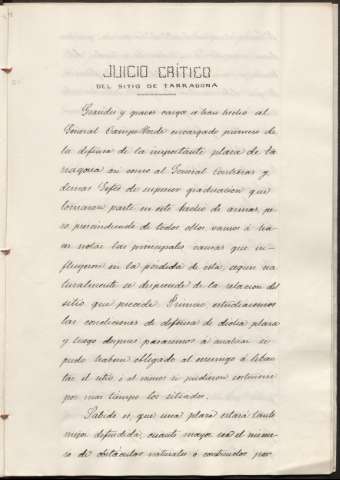 JUICIO CRÍTICO
DEL SITIO DE TARRAGONA
Grandes y graves cargos se han hecho al
General Campo-Verde encargado primero de
la defensa de la importante plaza de Ta-
rragona así como al General Contreras y
demas Gefes de superior graduacion que
tomaron parte en este hecho de armas, pe-
ro prescindiendo de todos ellos, vamos á ha-
cer notar las principales causas que in-
fluyeron en la pérdida de esta, segun na
turalmente se desprende de la relacion del
sitio que precede. Primero estudiaremos
las condiciones de defensa de dicha plaza
y luego despues pasaremos á analizar si
pudo haberse obligado al enemigo á leban
tar el sitio, ó al menos si pudieron sostenerse
por mas tiempo los sitiados.
Sabido es, que una plaza estará tanto
mejor defendida, cuanto mayor sea el núme-
ro de obstáculos naturales ó construidos por